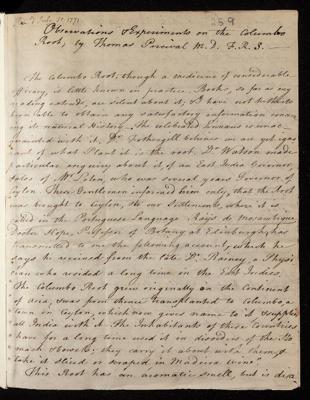 259
Observations & Experiments on the Columbo
Root, by Thomas Percival M.D. F.R.S.
The Columbo Root, though a medicine of considerable
efficacy, is little known in practice. Books, so far as my
reading extends, are silent about it, & I have not hitherto
been able to obtain any satisfactory information concern
ing its natural History. The celebrated
it, Dr. Fothergill believes
of what Plant it is the root. Dr. Watson made
particular enquiry about it, of an East India Governor,
also of Mr. Loten, who was several years Governor of
Ceylon. These Gentlemen informed him only, that the Root
was brought to Ceylon, & our Settlements, where it is
called in the Portuguese Language Rays de Mosambique.
Doctor Hope, Professor of Botany at Edinburgh, has
transmitted to me the following account, which he
says he received from the late Dr. Rainey, a Physi
cian who resided a long time in the East Indies.
The Columbo Root grew originally on the Continent
of Asia, & was from thence transplanted to Columbo, a
town in Ceylon, which now gives name to it & supplies
all India with it. The Inhabitants of those Countries
have for a long time used it in disorders of the Sto
mach & bowels: they carry it about with them, &
take it sliced or scraped in Madeira wine.
This Root has an aromatic smell, but is disa